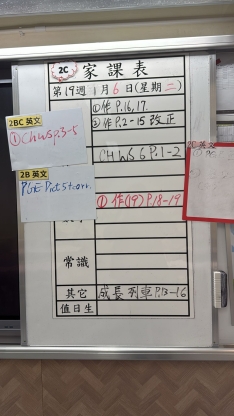 2C 家課表
第19週 1月6日(星期二)
①作P.16,17
②作P.2-15改正
2BC 英文
①CHWS P.3-5
CHWS 6 P.1-2
2B 英文
①作(19) P.18-19
常識
其它 成長列車P.13-16
值日生